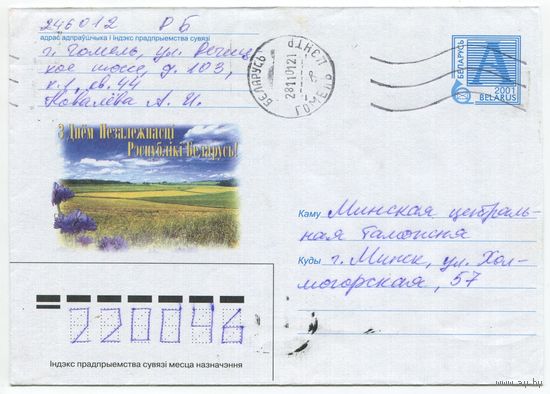 246012 РБ
адрас адпраўшчыка і індэкс прадпрыемства сувязі
г. Гомель, ул. Речиц-
кое шоссе, д. 103,
к. 1, кв. 44
Ковалёва А. И.
БЕЛАРУСЬ
ПОШТА
28110121
ГОМЕЛЬ
БЕЛАРУСЬ
А
2001
BELARUS
З Днём Незалежнасці
Рэспублікі Беларусь!
Каму Минская централь-
ная таможня
Куды г. Минск, ул. Хол-
могорская, 57
220046
Індэкс прадпрыемства сувязі месца назначэння
www.ay.by